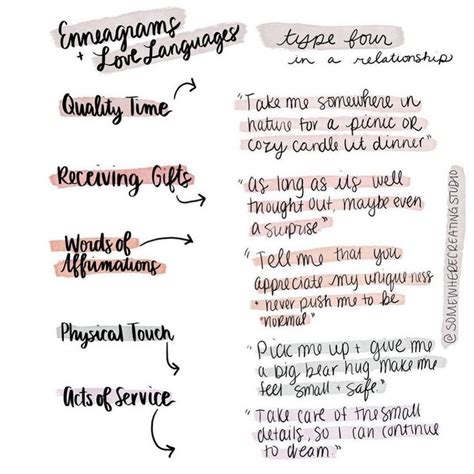 Enneagrams
+ Love Languages
type four
in a relationship
Quality Time
"Take me somewhere in
nature for a picnic OR
cozy candle lit dinner"
Receiving Gifts
"as long as its well
thought out, maybe even
a surprise"
Words of
Affirmations
"Tell me that you
appreciate my uniqueness
+ never push me to be
"normal"
Physical Touch
"Pick me up + give me
a big bear hug make me
feel small + safe."
Acts of Service
"Take care of the small
details, so I can continue
to dream."
@SOMEWHERECREATINGSTUDIO